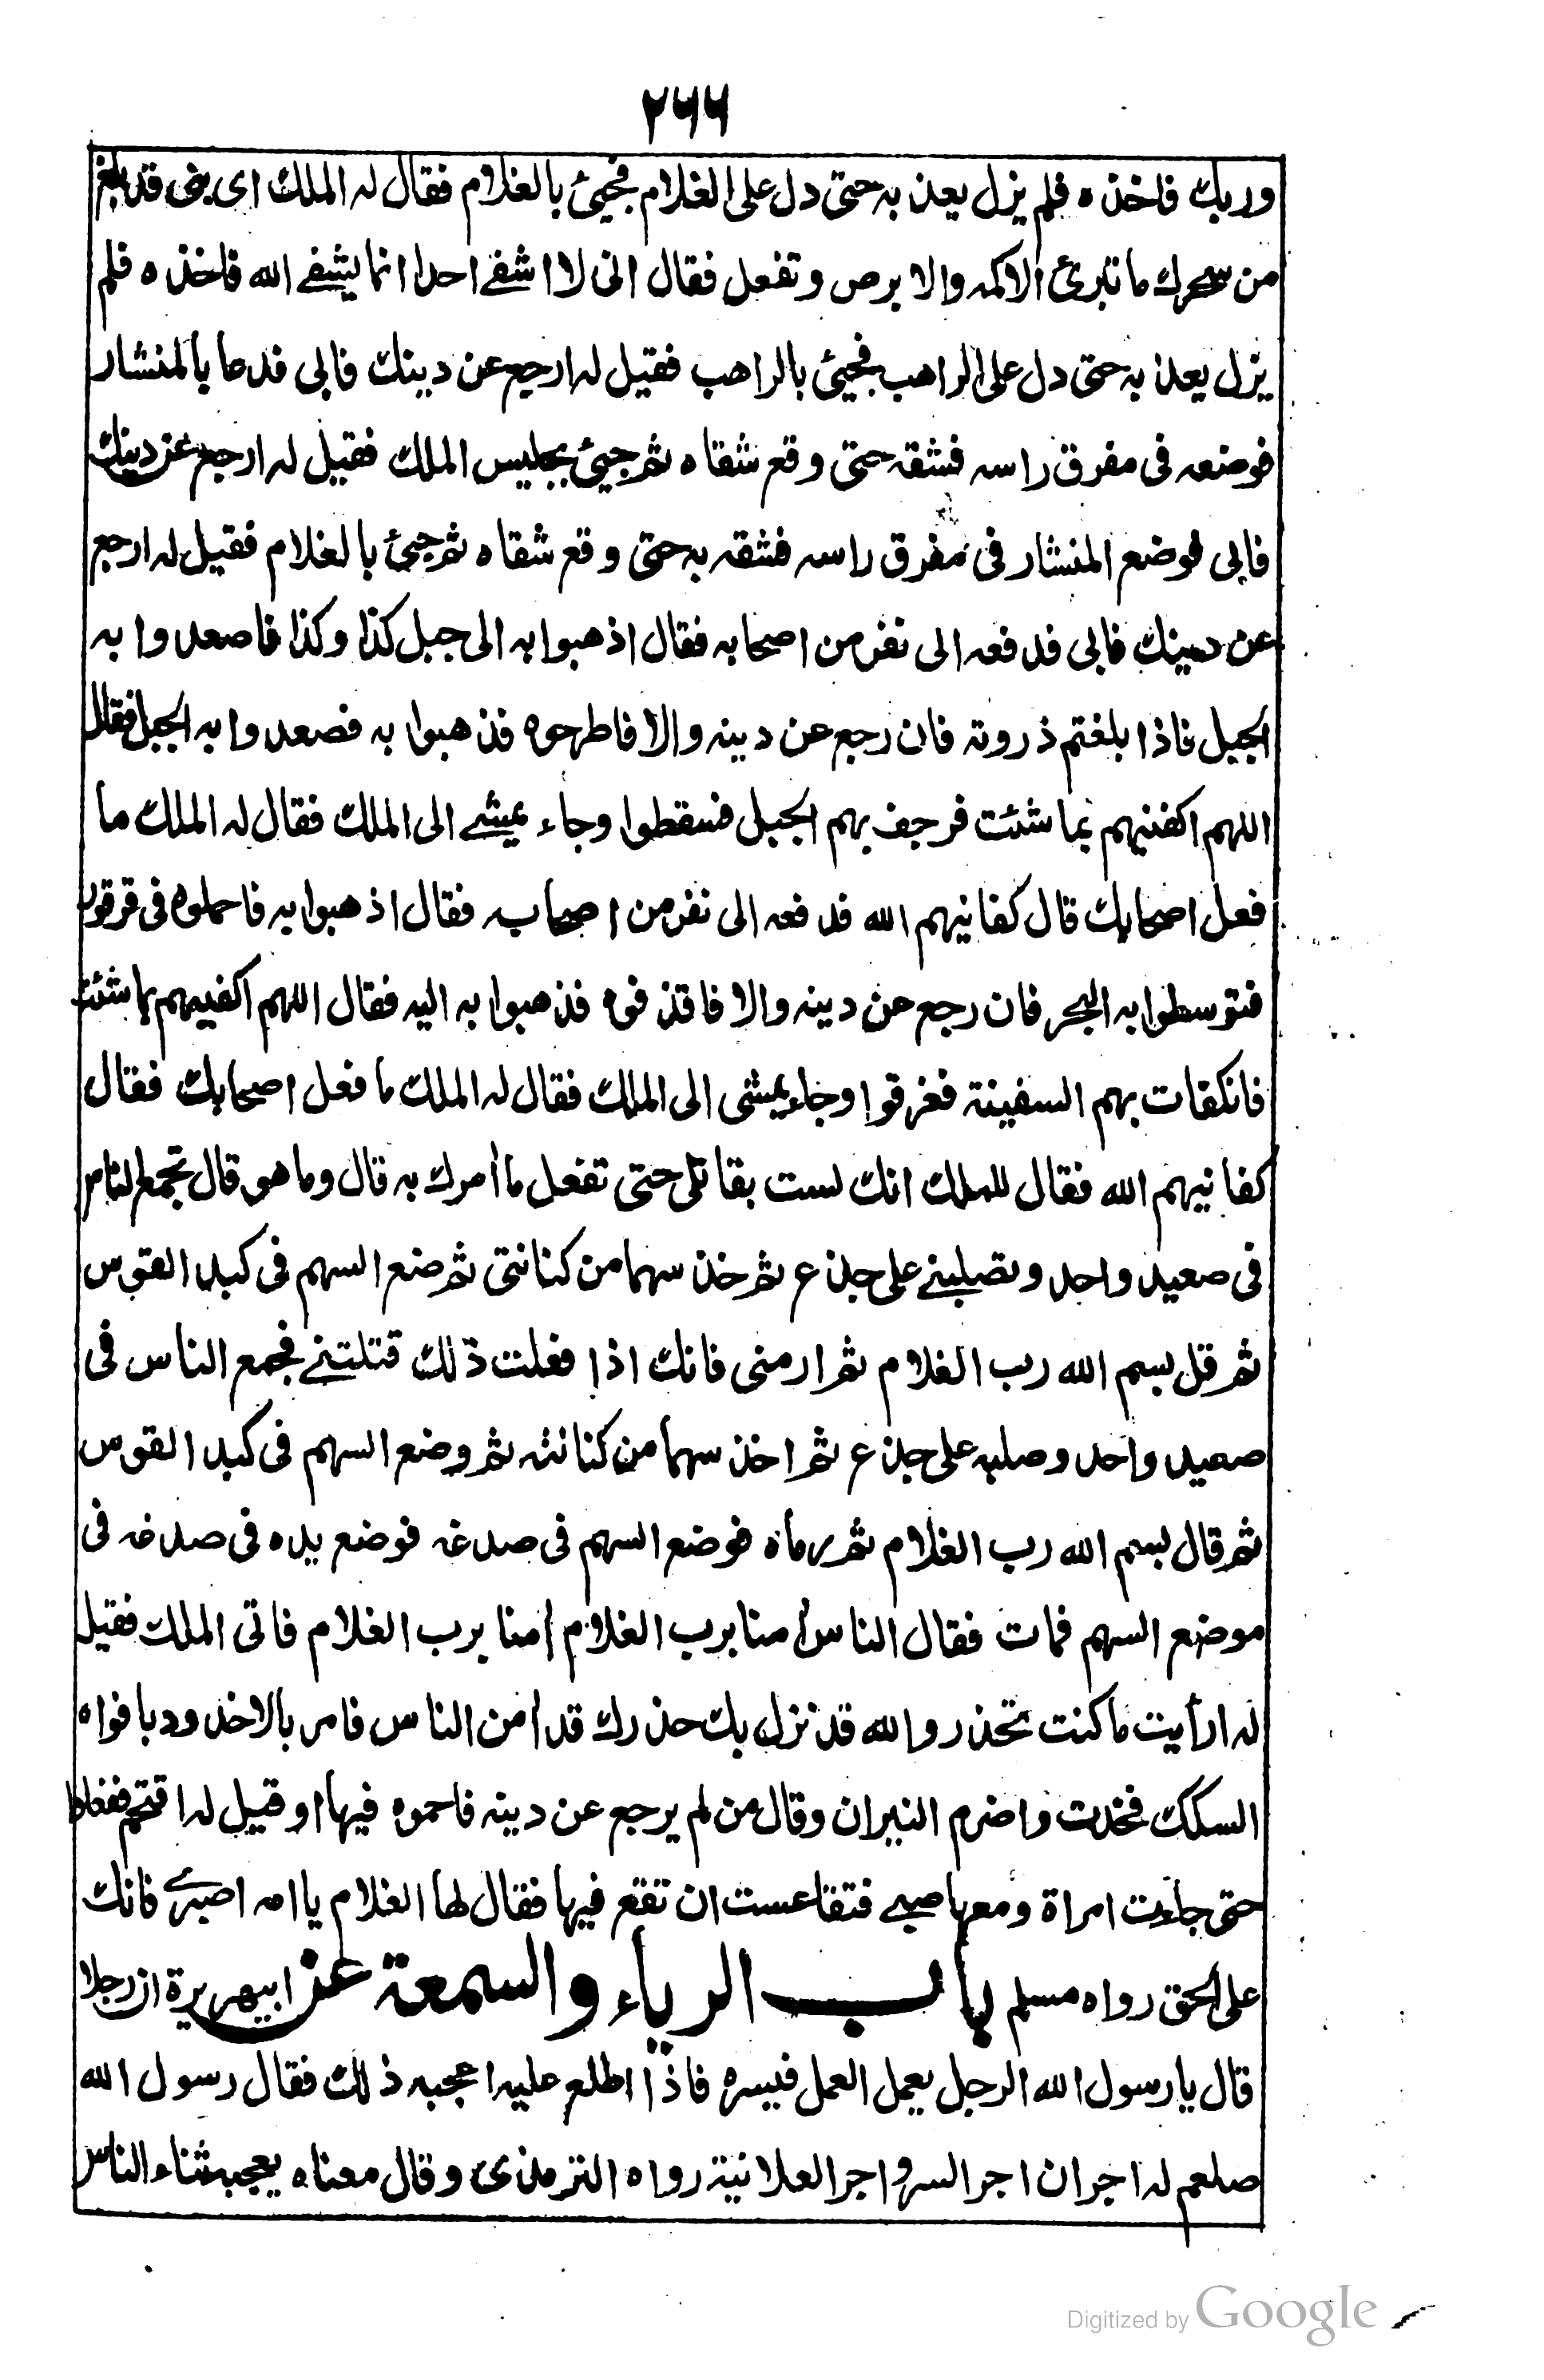 ٢٦٦
وربك فاخذه فلم يزل يعذبه حتى دل على الغلام فجيئ بالغلام فقال له الملك اى بنى قد بلغ
من سحرك ما تبرئ الاكمه والابرص وتفعل فقال انى لا اشفے احدا انما يشفے الله فاخذه فلم
يزل يعذبه حتى دل على الراهب فجيئ بالراهب فقيل له ارجع عن دينك فابى فدعا بالمنشار
فوضعه فى مفرق راسه فشقه حتى وقع شقاه ثم جيئ بجليس الملك فقيل له ارجع عن دينك
فابى فوضع المنشار فى مفرق راسه فشقه به حتى وقع شقاه ثم جيئ بالغلام فقيل له ارجع
عن دينك فابى فدفعه الى نفر من اصحابه فقال اذهبوا به الى جبل كذا وكذا فاصعدوا به
الجبل فاذا بلغتم ذروته فان رجع عن دينه والا فاطرحوه فذهبوا به فصعدوا به الجبل فقال
اللهم اكفنيهم بما شئت فرجف بهم الجبل فسقطوا وجاء يمشے الى الملك فقال له الملك ما
فعل اصحابك قال كفانيهم الله فدفعه الى نفر من اصحابه فقال اذهبوا به فاحملوه فى قرقور
فتوسطوا به البحر فان رجع عن دينه والا فاقذفوه فذهبوا به اليه فقال اللهم اكفيهم بما شئت
فانكفات بهم السفينة فغرقوا وجاء يمشى الى الملك فقال له الملك ما فعل اصحابك فقال
كفانيهم الله فقال للملك انك لست بقاتلى حتى تفعل ما أمرك به قال وما هو قال تجمع الناس
فى صعيد واحد وتصلبنے على جذع ثم خذ سهما من كنانتى ثم ضع السهم فى كبد القوس
ثم قل بسم الله رب الغلام ثم ارمنى فانك اذا فعلت ذلك قتلتنے فجمع الناس فى
صعيد واحد وصلبه على جذع ثم اخذ سهما من كنانته ثم وضع السهم فى كبد القوس
ثم قال بسم الله رب الغلام ثم رماه فوضع السهم فى صدغه فوضع يده فى صدغه فى
موضع السهم فمات فقال الناس امنا برب الغلام امنا برب الغلام فاتى الملك فقيل
له ارأيت ما كنت تحذر والله قد نزل بك حذرك قد امن الناس فامر بالاخدود بافواه
السكك فخدت واضرم النيران وقال من لم يرجع عن دينه فاحموه فيها او قيل له اقتحم ففعلوا
حتى جاءت امراة ومعها صبے فتقاعست ان تقع فيها فقال لها الغلام يا امه اصبرے فانك
على الحق رواه مسلم باب الرياء والسمعة عن ابيهريرة ان رجلا
قال يا رسول الله الرجل يعمل العمل فيسره فاذا اطلع عليه اعجبه ذلك فقال رسول الله
صلعم له اجران اجر السر واجر العلانية رواه الترمذى وقال معناه يعجبه ثناء الناس
Digitized by Google